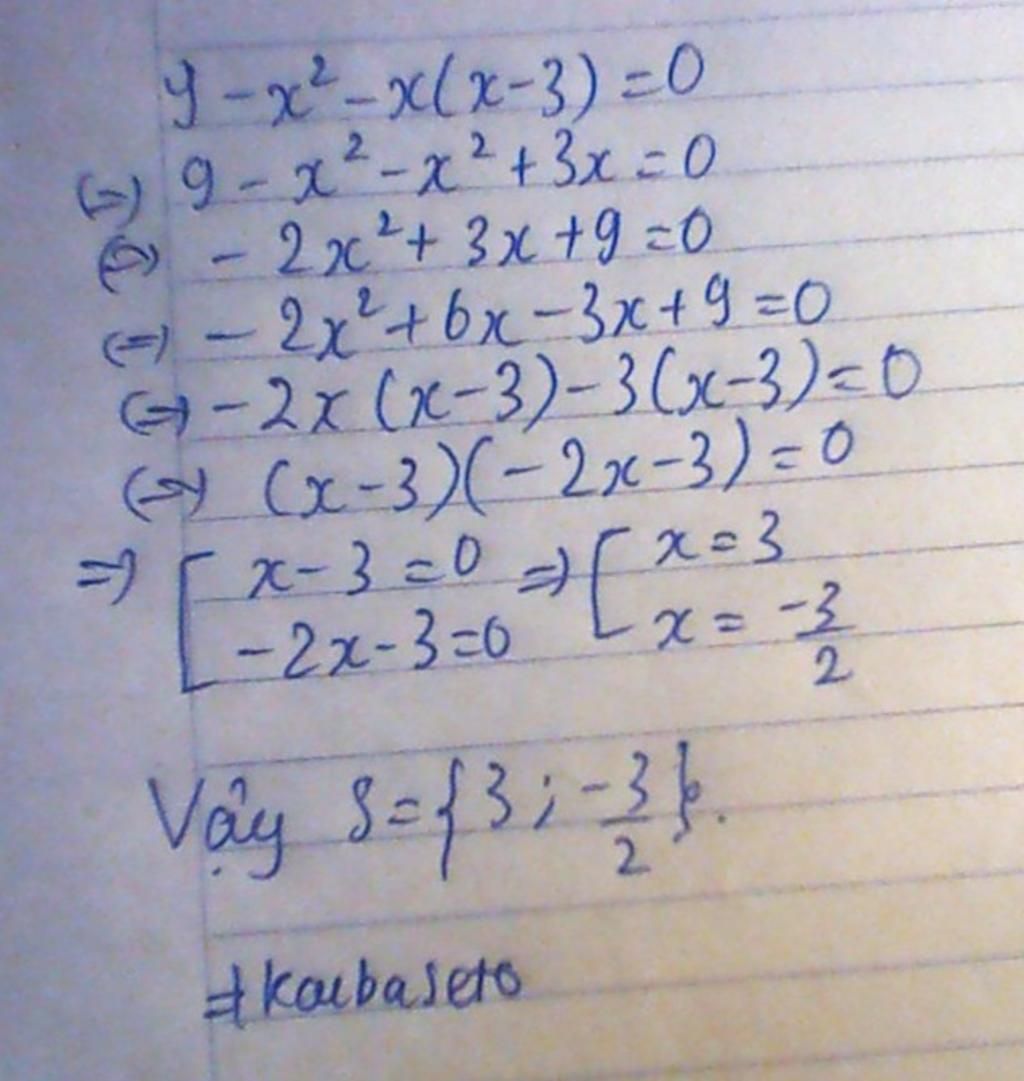 9 - x² - x(x-3) = 0
(=) 9 - x² - x² + 3x = 0
(=) - 2x² + 3x + 9 = 0
(=) - 2x² + 6x - 3x + 9 = 0
(=) - 2x (x-3) - 3(x-3) = 0
(=) (x-3)(-2x-3) = 0
=) [ x-3 = 0 =) [ x = 3
-2x-3=0 x = -3/2
Vậy S = {3 ; -3/2}.
=) Kaibaseto